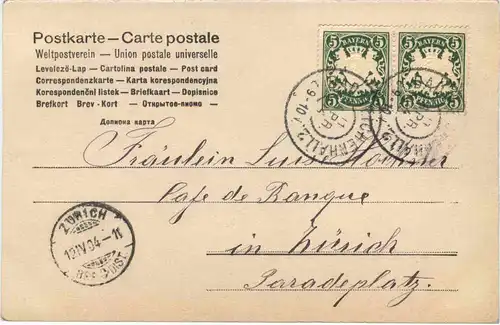 Postkarte — Carte postale
Weltpostverein — Union postale universelle
Levelező-Lap — Cartolina postale — Post card
Correspondenzkarte — Karta korespondencyjna
Korespondenční lístek — Briefkaart — Dopisnice
Brefkort Brev-Kort — Открытое письмо —
Дописна карта
BAYERN
5 5
PFENNIG
BAYERN
5 5
PFENNIG
Fräulein
Café de Banque
in Zürich
Paradeplatz.
ZÜRICH
12 IV 04 - 11